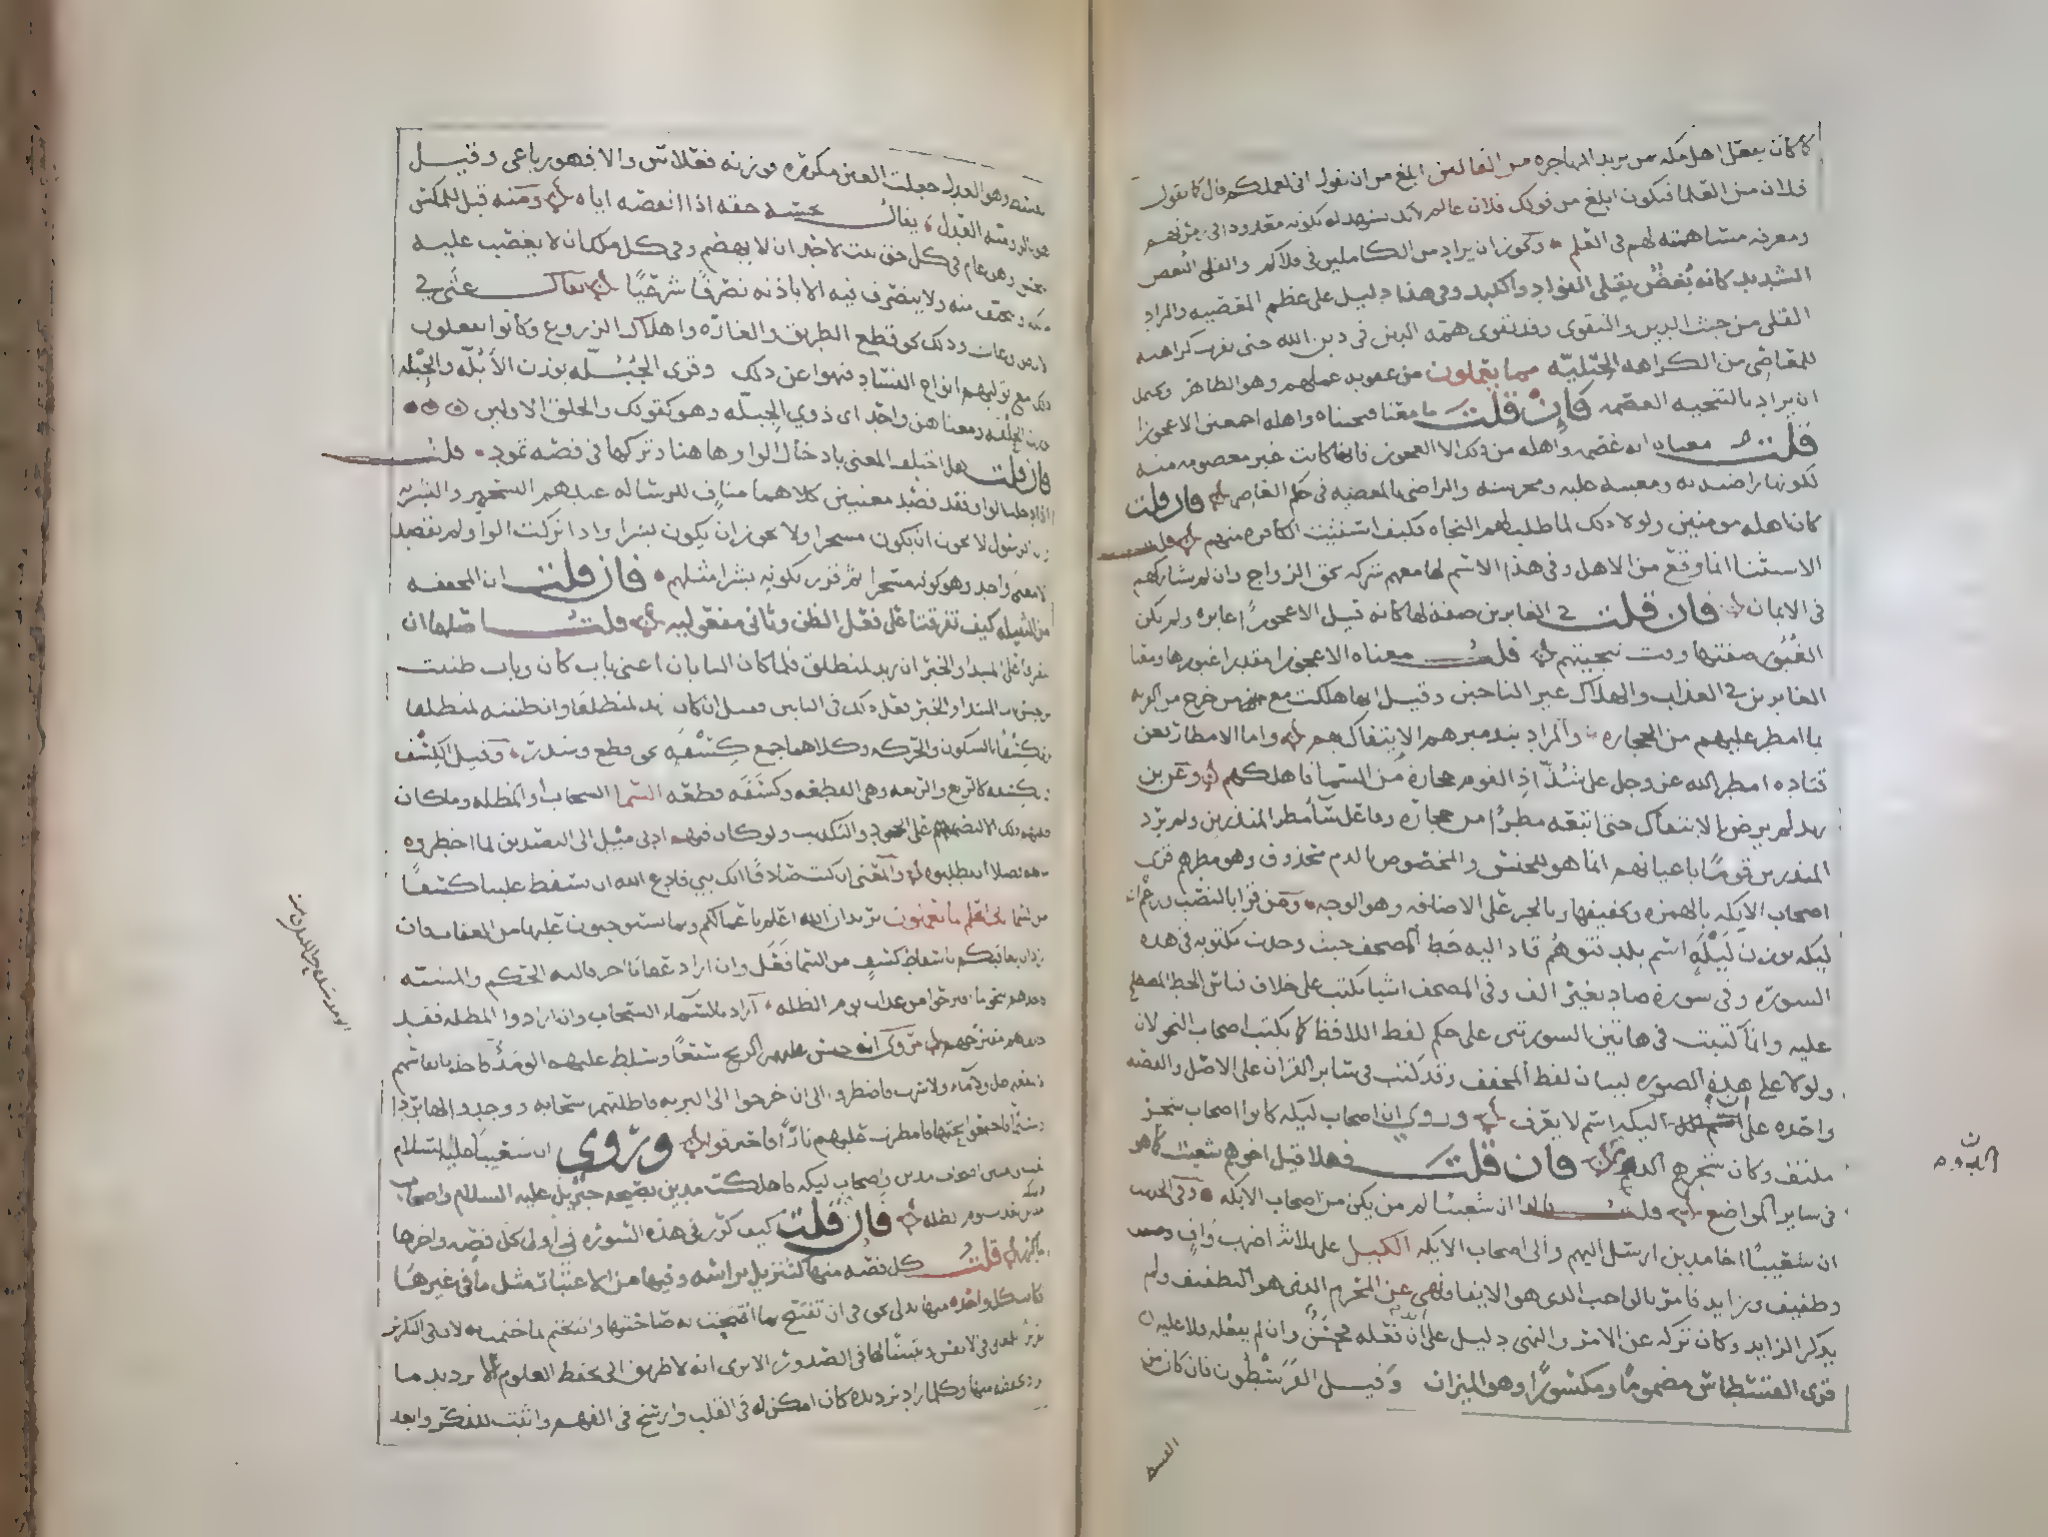 كما كان يفعل اهل مكه بمن يريد المهاجره من القالين ابلغ من ان يقول انى لعملكم قال كما يقول
فلان من العلما فيكون ابلغ من قولك فلان عالم لانك تشهد له بكونه معدودا فى زمرتهم
ومعرفه مساهمته لهم فى العلم ويجوز ان يراد من الكاملين فى قلاكم والقلى البغض
الشديد كانه بغض يقلى الفواد والكبد وفى هذا دليل على عظم المعصيه والمراد
القلى من حيث الدين والتقوى وقد تقوى همة الدين فى دين الله حتى تقرب كراهته
للمعاصى من الكراهه الجبليه مما يعملون من عقوبه عملهم وهو الظاهر ويحتمل
ان يراد بالتنجيه العصمه فان قلت ما معنا فنجيناه واهله اجمعين الا عجوزا
قلت معناه انه عصمه واهله من ذلك الا العجوز فانها كانت غير معصومه منه
لكونها راضيه به ومعينه عليه ومحرشه والراضى بالمعصيه فى حكم العاصى فان قلت
كان اهله مومنين ولولا ذلك لما طلب لهم النجاه فكيف استثنيت الكافره منهم قلت
الاستثنا انما وقع من الاهل وفى هذا الاسم لها معهم شركه بحق الزواج وان لم تشاركهم
فى الايمان فان قلت فى الغابرين صفه لها كانه قيل الا عجوزا غابره ولم يكن
الغبور صفتها وقت تنجيتهم قلت معناه الا عجوزا مقدرا غبورها ومعنا
الغابرين فى العذاب والهلاك غير الناجين وقيل انها هلكت مع من خرج من القريه
بما امطر عليهم من الحجاره والمراد بتدميرهم الايتفاك بهم واما الامطار فعن
قتاده امطر الله عز وجل على شذاذ القوم حجارة من السما فاهلكهم وعن بن
زيد لم يرض بالايتفاك حتى اتبعه مطرا من حجاره وفاعل سآ مطر المنذرين ولم يرد
المنذرين قوما باعيانهم انما هو للجنس والمخصوص بالذم محذوف وهو مطرهم قرى
اصحاب الايكه بالهمزه وتخفيفها وبالجر على الاضافه وهو الوجه ومن قرا بالنصب وزعم ان
ليكه بوزن ليله اسم بلد فتوهم قاد اليه خط المصحف حيث وجدت مكتوبه فى هذه
السوره وفى سورة صاد بغير الف وفى المصحف اشيا كتبت على خلاف قياس الخط المصطلح
عليه وانما كتبت فى هاتين السورتين على حكم لفظ اللافظ كما يكتب اصحاب النحو لان
ولولا على هذه الصوره لبيان لفظ المخفف وقد كتبت فى ساير القران على الاصل والقصه
واحده على ان ليكه اسم لا يعرف وروى ان اصحاب ليكه كانوا اصحاب شجر
ملتف وكان شجرهم الدوم فان قلت فهلا قيل اخوهم شعيب كما هو
فى ساير المواضع قلت قالوا ان شعيبا لم يكن من اصحاب الايكه وفى الحديث
ان شعيبا اخا مدين ارسل اليهم والى اصحاب الايكه الكيل على ثلاثه اضرب واف
وطفيف وزايد فامر بالواجب الذى هو الايفا ونهى عن المحرم الذى هو التطفيف ولم
يذكر الزايد وكان تركه عن الامر والنهى دليل على انه ان فعله فمحسن وان لم يفعله فلا عليه
قرى القسطاس مضموما ومكسورا وهو الميزان وقيل القرسطون فان كان من
القسط
القسط وهو العدل جعلت العين مكرره فوزنه فعلاس والا فهو رباعى وقيل
هو بالروميه العدل يقال بخسه حقه اذا انقصه اياه ومنه قيل للمكس
بخس وهو عام فى كل حق ثبت لاحد ان لا يهضم وفى كل ملك ان لا يغصب عليه
ولا يتصرف فيه الا باذنه تصرفا شرعيا يقال عثى فى
الارض وذلك نحو قطع الطريق والغاره واهلاك الزروع وكانوا يفعلون
ذلك مع توليهم انواع الفساد فنهوا عن ذلك وقرى الجبله بوزن الابله والجبله
الخلقه ومعناهن واحد اى ذوى الجبله وهو كقولك والخلق الاولين
فان قلت هل اختلف المعنى بادخال الواو هاهنا وتركها فى قصه ثمود قلت
اذا دخلت الواو فقد قصد معنيين كلاهما مناف للرساله عندهم التسحير والبشريه
وان الرسول لا يجوز ان يكون مسحرا ولا يجوز ان يكون بشرا واذا تركت الواو ولم يقصد
الا معنى واحد وهو كونه مسحرا ثم قرر بكونه بشرا مثلهم فان قلت ان المخففه
من الثقيله كيف تفرقتا على فعل الظن وثانى مفعوليه قلت اصلها ان
يتفرقا على المبتدا والخبر ان زيد لمنطلق فلما كان البابان اعنى باب كان وباب ظننت
من جنس باب المبتدا والخبر فعل ذلك فى البابين فقيل ان كان زيد لمنطلقا وان ظننته لمنطلقا
قرى كسفا بالسكون والحركه وكلاهما جمع كسفه نحو قطع وسدر وقيل الكسف
والكسفه كالريع والريعه وهى القطعه وكسفه قطعه السما السحاب او المظله وما كان
طلبهم ذلك الا لتصميمهم على الجحود والتكذيب ولو كان فيهم ادنى ميل الى التصديق لما اخطروه
ببالهم فضلا ان يطلبوه والمعنى ان كنت صادقا انك نبى فادع الله ان يسقط علينا كسفا
من السما ربى اعلم بما تعملون يريد ان الله اعلم باعمالكم وبما تستوجبون عليها من العقاب فان
اراد ان يعاقبكم باسقاط كسف من السما فعل وان اراد عقابا اخر فاليه الحكم والمشيه
فاخذهم بنحو ما اقترحوا من عذاب يوم الظله اراد بالسماء السحاب وان ارادوا المظله فقد
خالف بهم مقترحهم يروى انه حبس عليهم الريح سبعا وسلط عليهم الومد فاخذ بانفاسهم
لا ينفعهم ظل ولا ماء ولا سرب فاضطروا الى ان خرجوا الى البريه فاظلتهم سحابه وجدوا لها بردا
ونسيما فاجتمعوا تحتها فامطرت عليهم نارا فاحترقوا وروى ان شعيبا عليه السلام
بعث الى امتين اصحاب مدين واصحاب ليكه فاهلكت مدين بصيحه جبريل عليه السلام واصحاب
الايكه بعذاب يوم الظله فان قلت كيف كرر فى هذه السوره فى اول كل قصه واخرها
ما كرر قلت كل قصه منها كتنزيل براسه وفيها من الاعتبار مثل ما فى غيرها
فكانت كل واحده منها تدلى بحق فى ان تفتتح بما افتتحت به صاحبتها وان تختتم بما ختمت به لان فى التكرير
تقريرا للمعانى فى الانفس وتثبيتا لها فى الصدور الا ترى انه لا طريق الى تحفظ العلوم الا ترديد ما
يراد تحفظه منها وكلما زاد ترديده كان امكن له فى القلب وارسخ فى الفهم واثبت للذكر وابعد